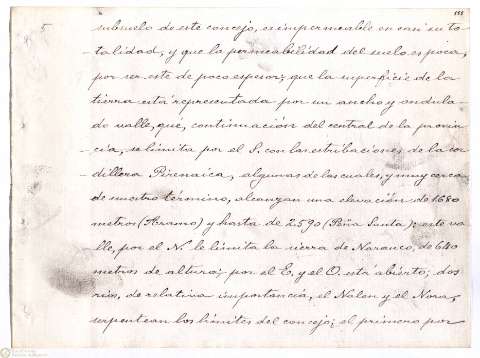 5
subsuelo de este concejo, es impermeable en casi su to-
-talidad, y que la permeabilidad del suelo es poca,
por ser este de poco espesor; que la superficie de la
tierra está representada por un ancho y ondula-
do valle, que, continuación del central de la provin-
cia, se limita por el S. con las estribaciones de la cor-
dillera Pirenaica, algunas de las cuales, y muy cerca
de nuestro término, alcanzan una elevación de 1680
metros (Aramo) y hasta de 2590 (Peña Santa): este va-
lle, por el N. le limita la sierra de Naranco, de 640
metros de altura; por el E. y el O. está abierto; dos
rios, de relativa importancia, el Nalon y el Nora,
serpentean los límites del concejo; el primero por